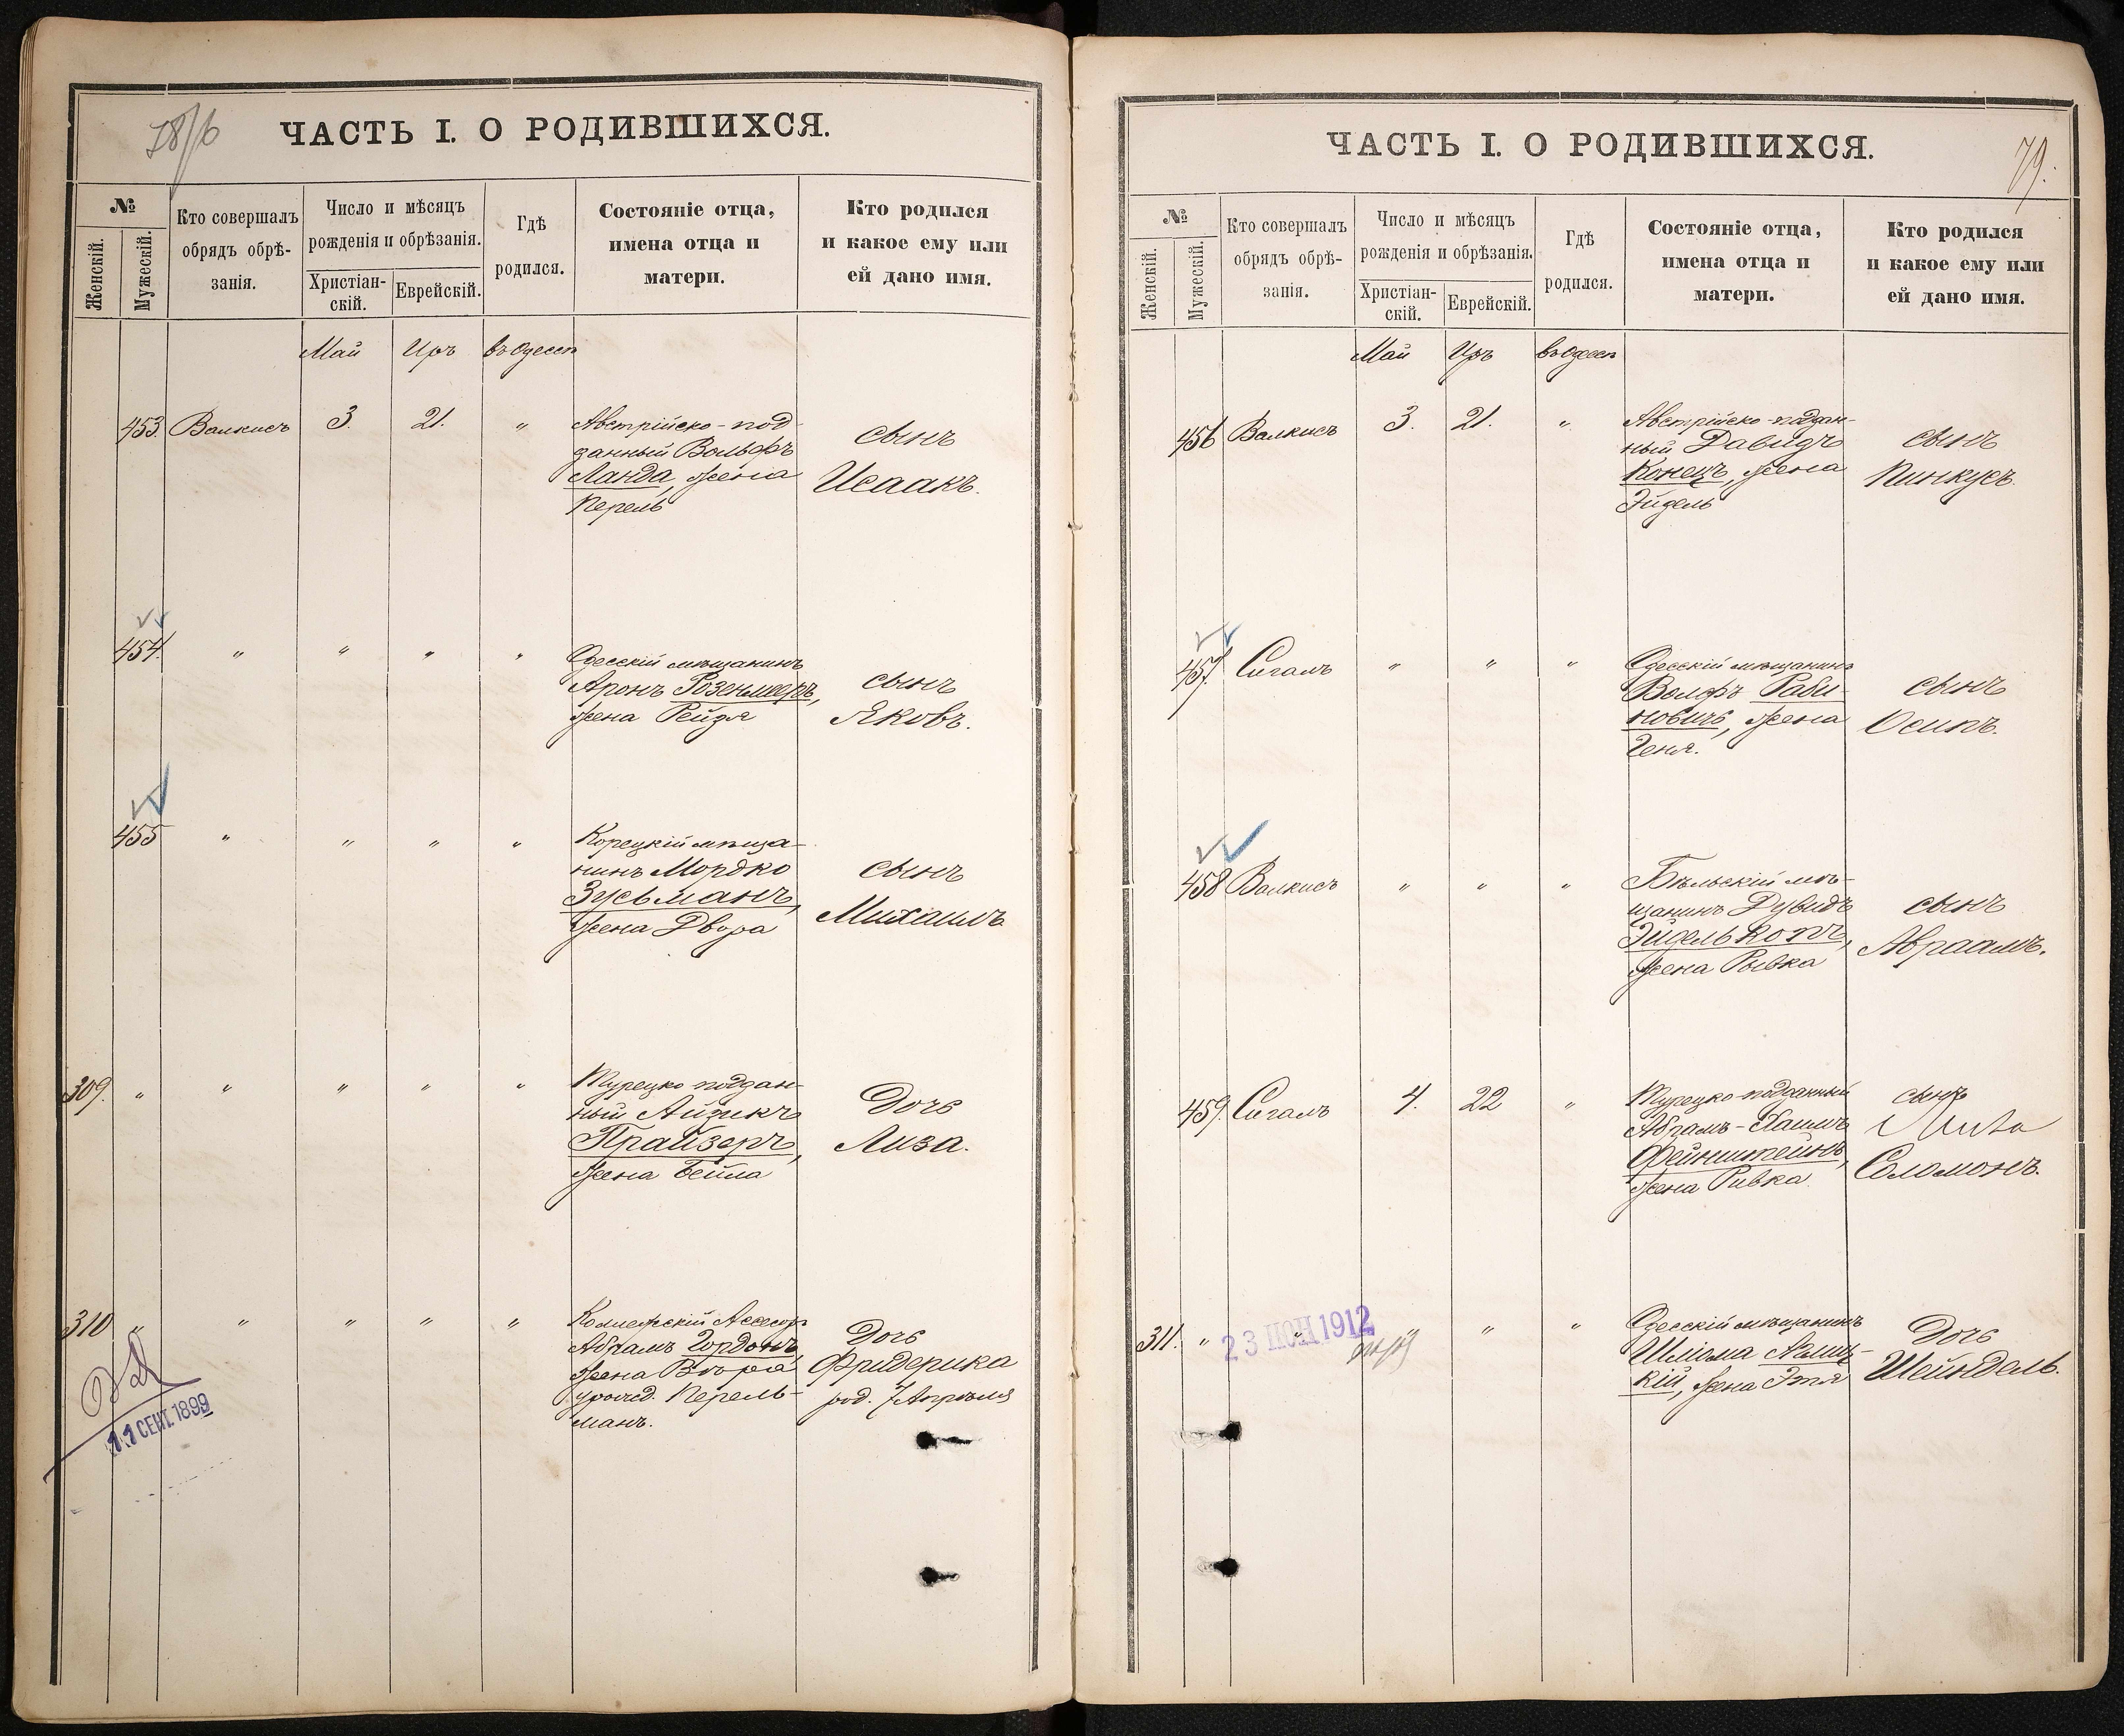 78/б
ЧАСТЬ I. О РОДИВШИХСЯ.
№
Женскій.
Мужескій.
Кто совершалъ
обрядъ обрѣ-
занія.
Число и мѣсяцъ
рожденія и обрѣзанія.
Христіан-
скій.
Еврейскій.
Гдѣ
родился.
Состояніе отца,
имена отца и
матери.
Кто родился
и какое ему или
ей дано имя.
Май Иръ въ Одессѣ
453. Валкисъ 3. 21. "
Австрійско-под-
данный Вольфъ
Ланда, жена
Перель
сынъ
Исаакъ.
454. " " " "
Одесскій мѣщанинъ
Аронъ Розенмееръ,
жена Рейзя
сынъ
Яковъ.
455 " " " "
Корецкій мѣща-
нинъ Мордко
Зусьманъ,
жена Двора
сынъ
Михаилъ
309. " " " " "
Турецко-поддан-
ный Айзикъ
Прайзеръ,
жена Бейла
Дочь
Лиза.
310 " " " " "
Коллежскій Ассесоръ
Абрамъ Гордонъ,
жена Вѣра
урожд. Перель-
манъ.
Дочь
Фридерика
род. 7 Апрѣля
11 СЕНТ. 1899
79.
ЧАСТЬ I. О РОДИВШИХСЯ.
№
Женскій.
Мужескій.
Кто совершалъ
обрядъ обрѣ-
занія.
Число и мѣсяцъ
рожденія и обрѣзанія.
Христіан-
скій.
Еврейскій.
Гдѣ
родился.
Состояніе отца,
имена отца и
матери.
Кто родился
и какое ему или
ей дано имя.
Май Иръ въ Одессѣ
456 Валкисъ 3. 21. "
Австрійско-поддан-
ный Давидъ
Конецъ, жена
Эйдель
сынъ
Пинкусъ.
457. Сигалъ " " "
Одесскій мѣщанинъ
Волфъ Раби-
новичъ, жена
Геня.
сынъ
Осипъ.
458 Валкисъ " " "
Бѣльскій мѣ-
щанинъ Дувидъ
Эйделькопъ,
жена Рывка
сынъ
Авраамъ.
459. Сигалъ 4. 22 "
Турецко-подданный
Абрамъ-Хаимъ
Фейнштейнъ,
жена Ривка.
сынъ
Соломонъ.
311. " " " " "
23 ІЮН 1912
Одесскій мѣщанинъ
жена Этя
Дочь
Шейндель.